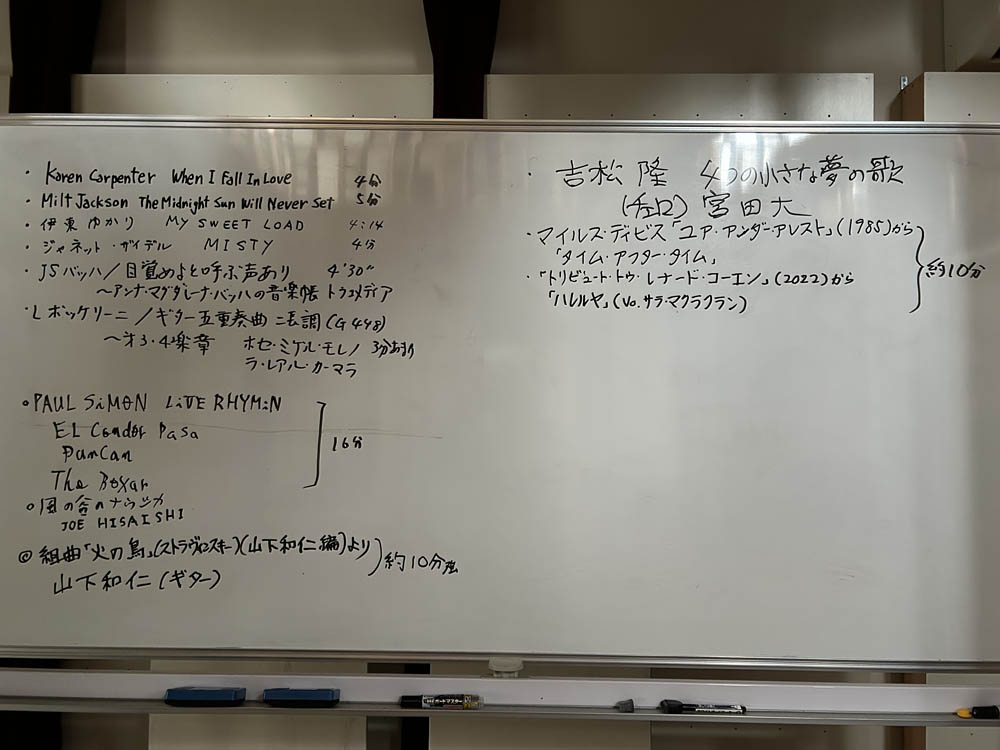 ・Karen Carpenter When I Fall In Love 4分
・Milt Jackson The Midnight Sun Will Never Set 5分
・伊東ゆかり MY SWEET LOAD 4:14
・ジャネット・ザイデル MISTY 4分
・JSバッハ/目覚めよと呼ぶ声あり 4'30"
～アンナ・マグダレーナ・バッハの音楽帳 トラジメディア
・L ボッケリーニ/ギター五重奏曲 ニ長調(G448)
～才3・4楽章 ホセ・ミゲル・モレノ 3分あまり
ラ・レアル・カーマラ
○PAUL SiMON LiVE RHYMiN
EL Condor Pasa
DunCan
The Boxar
16分
○風の谷のナウシカ
JOE HISAISHI
◎組曲「火の鳥」(ストラヴィンスキー)(山下和仁編)より
山下和仁(ギター)
約10分強
・吉松隆 4つの小さな夢の歌
(チェロ)宮田大
・マイルス・デイビス「ユア・アンダー・アレスト」(1985)から
「タイム・アフター・タイム」
・「トリビュート・トゥ・レナード・コーエン」(2022)から
「ハレルヤ」(Vo.サラ・マクラクラン)
約10分